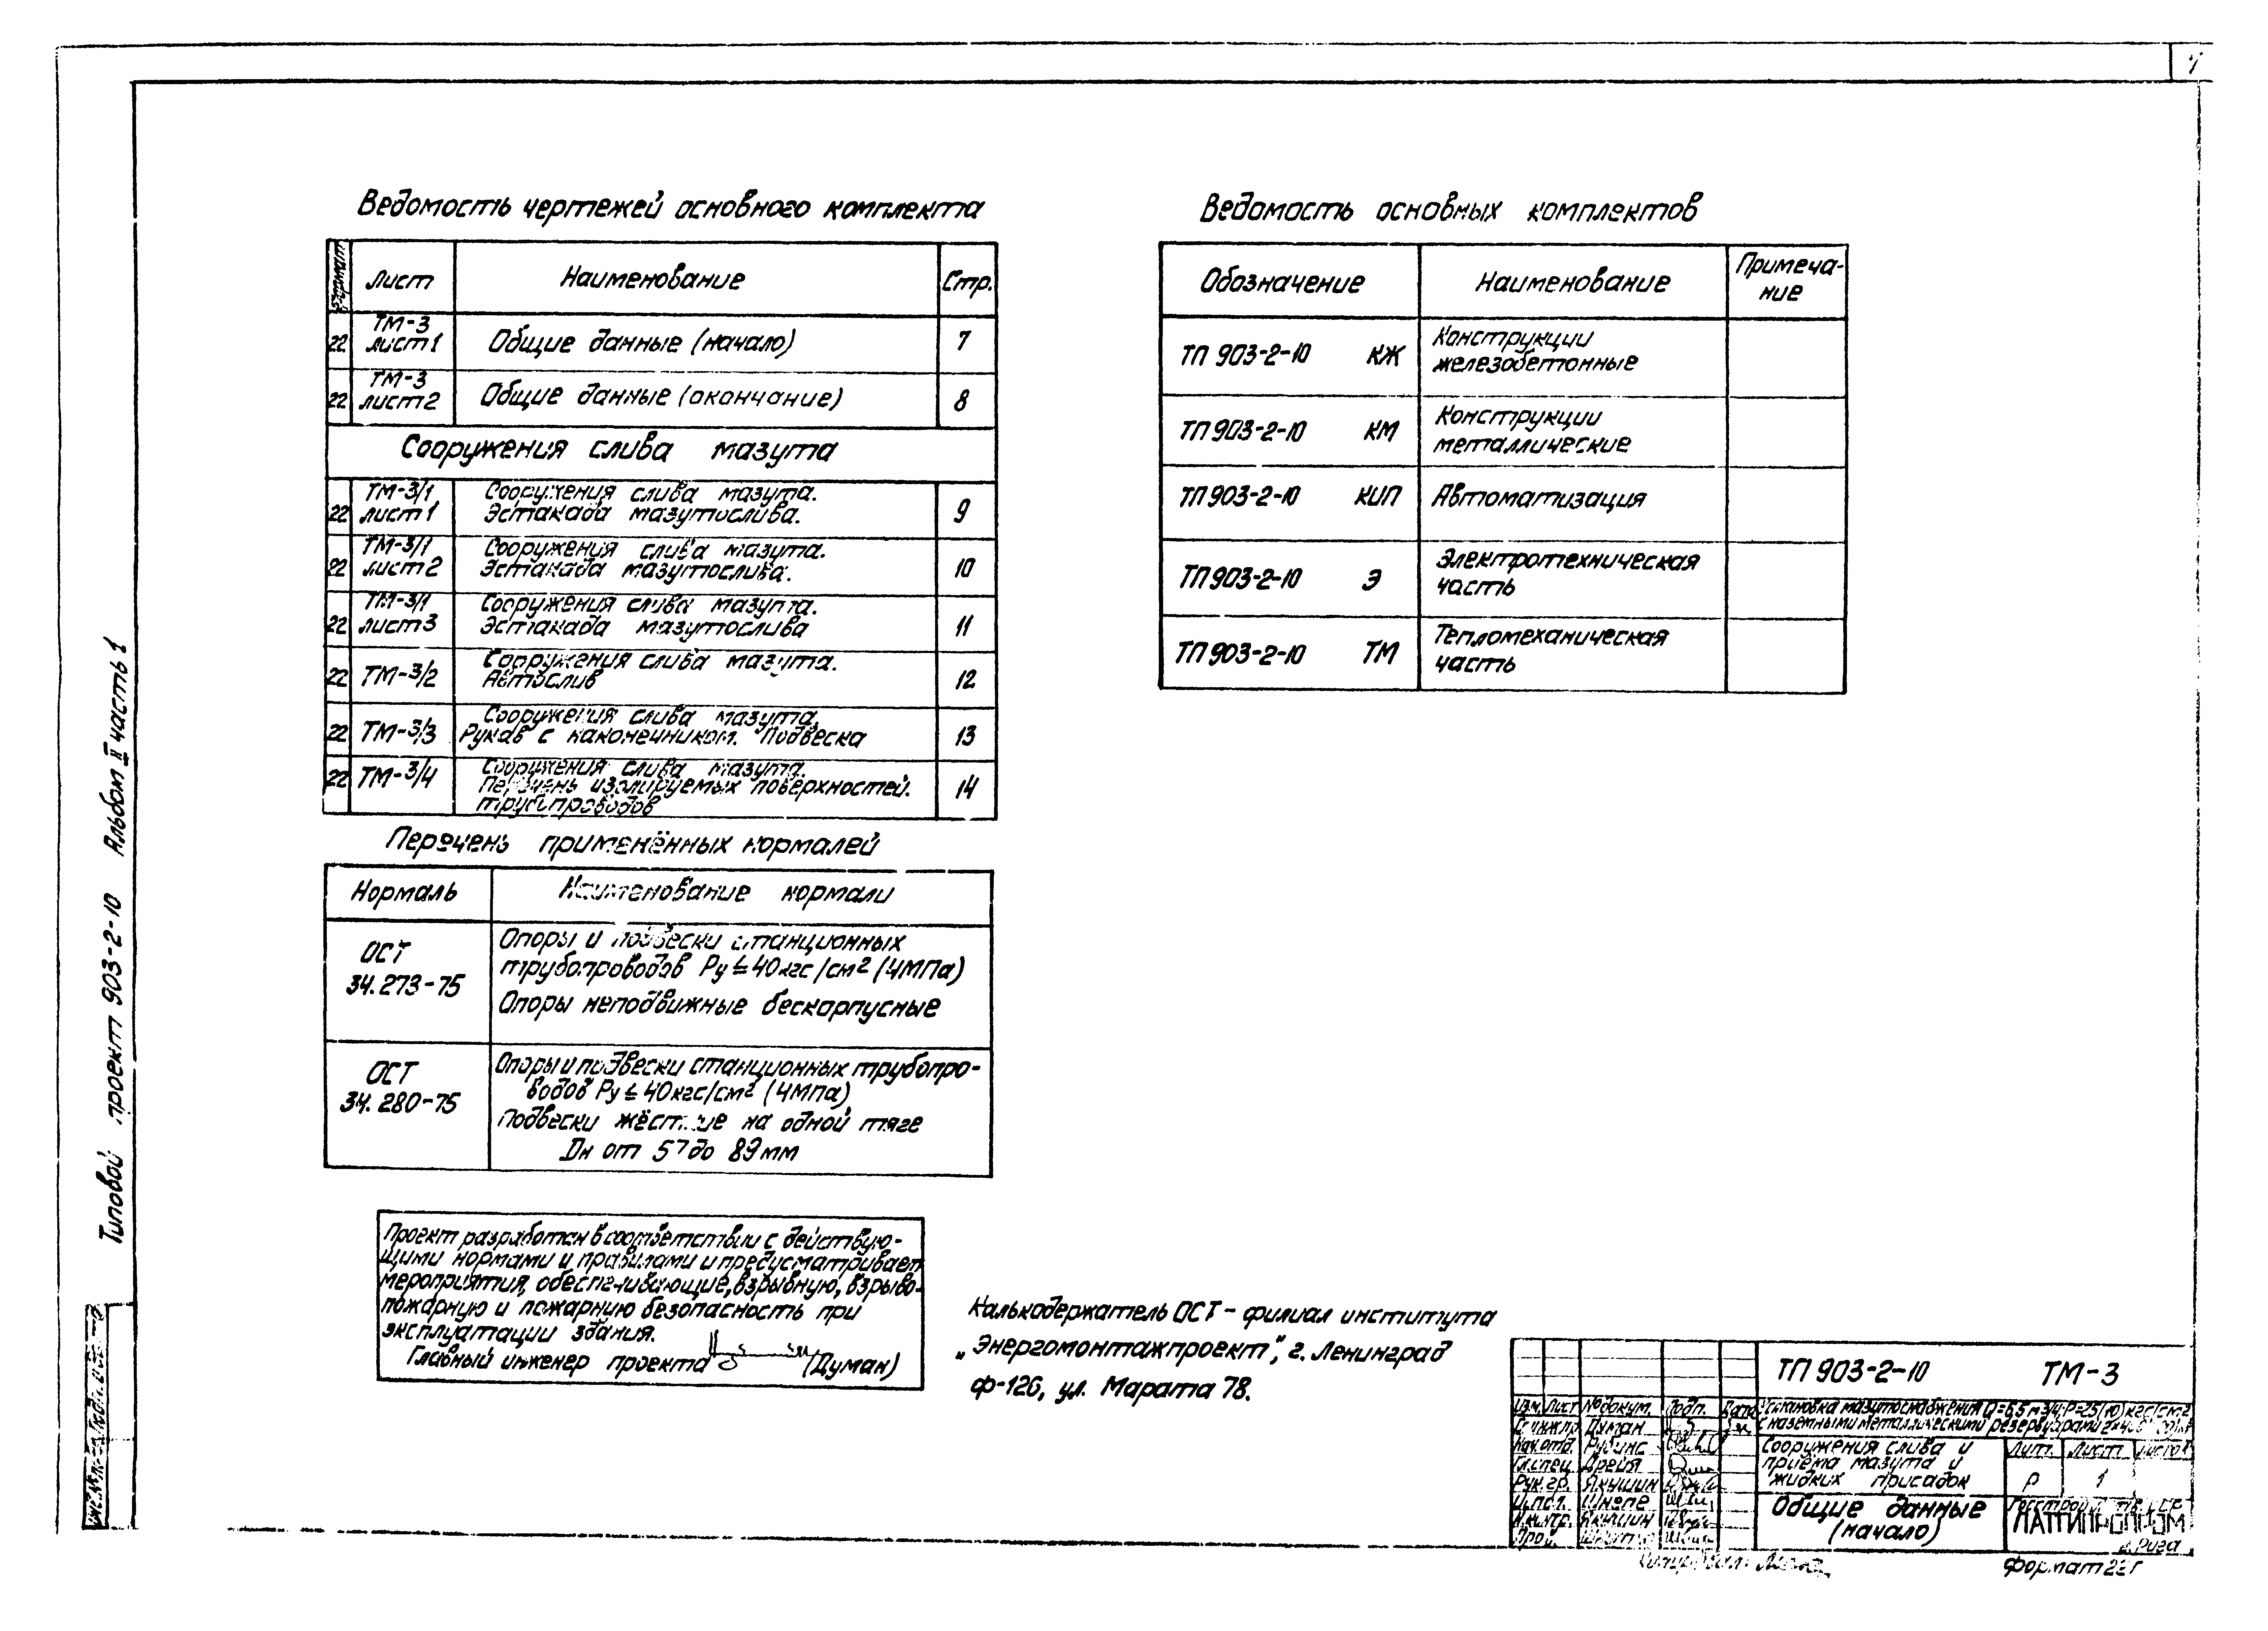 7
Ведомость чертежей основного комплекта
Формат Лист Наименование Стр.
22 ТМ-3 лист 1 Общие данные (начало) 7
22 ТМ-3 лист 2 Общие данные (окончание) 8
Сооружения слива мазута
22 ТМ-3/1 лист 1 Сооружения слива мазута. Эстакада мазутослива. 9
22 ТМ-3/1 лист 2 Сооружения слива мазута. Эстакада мазутослива. 10
22 ТМ-3/1 лист 3 Сооружения слива мазута. Эстакада мазутослива 11
22 ТМ-3/2 Сооружения слива мазута. Автослив 12
22 ТМ-3/3 Сооружения слива мазута. Рукав с наконечником. Подвеска 13
22 ТМ-3/4 Сооружения слива мазута. Перечень изолируемых поверхностей. трубопроводов 14
Перечень применённых нормалей
Нормаль Наименование нормали
ОСТ 34.273-75
Опоры и подвески станционных
трубопроводов Ру≤40кгс/см² (4МПа)
Опоры неподвижные бескорпусные
ОСТ 34.280-75
Опоры и подвески станционных трубопро-
водов Ру≤40кгс/см² (4МПа)
Подвески жёсткие на одной тяге
Dн от 57 до 89мм
Проект разработан в соответствии с действую-
щими нормами и правилами и предусматривает
мероприятия, обеспечивающие, взрывную, взрыво-
пожарную и пожарную безопасность при
эксплуатации здания.
Главный инженер проекта (Думан)
Ведомость основных комплектов
Обозначение Наименование Примеча-
ние
ТП 903-2-10 КЖ Конструкции железобетонные
ТП 903-2-10 КМ Конструкции металлические
ТП 903-2-10 КИП Автоматизация
ТП 903-2-10 Э Электротехническая часть
ТП 903-2-10 ТМ Тепломеханическая часть
Калькодержатель ОСТ - филиал института
„Энергомонтажпроект", г. Ленинград
Ф-126, ул. Марата 78.
Типовой проект 903-2-10 Альбом II часть 1
ТП 903-2-10 ТМ-3
Изм. Лист № докум. Подп. Дата
Установка мазутоснабжения Q=6,5 м3/ч; Р=25(10) кгс/см2
с наземными металлическими резервуарами
Думан
Нач.отд. Рубинс
Гл.спец. Дрейя
Рук.гр. Якушин
Н.контр. Якушин
Сооружения слива и
приёма мазута и
жидких присадок
Лит. Лист Листов
Р 1
Общие данные
(начало)
ЛАТГИПРОПРОМ
г. Рига
Формат 22Г